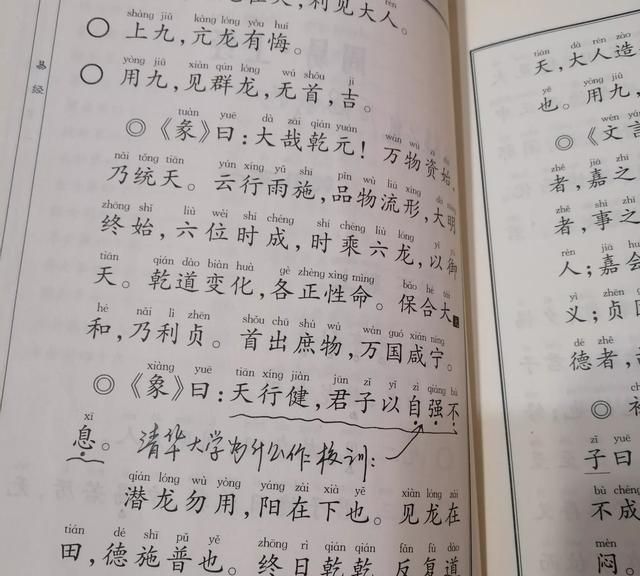 利见大人。
shàng jiǔ kàng lóng yǒu huǐ
○ 上九,亢龙有悔。
yòng jiǔ xiàn qún lóng wú shǒu jí
○ 用九,见群龙,无首,吉。
tuàn yuē dà zāi qián yuán wàn wù zī shǐ
◎《彖》曰:大哉乾元!万物资始,
nǎi tǒng tiān yún xíng yǔ shī pǐn wù liú xíng dà míng
乃统天。云行雨施,品物流形,大明
zhōng shǐ liù wèi shí chéng shí chéng liù lóng yǐ yù
终始,六位时成,时乘六龙,以御
tiān qián dào biàn huà gè zhèng xìng mìng bǎo hé tài
天。乾道变化,各正性命。保合大
hé nǎi lì zhēn shǒu chū shù wù wàn guó xián níng
和,乃利贞。首出庶物,万国咸宁。
xiàng yuē tiān xíng jiàn jūn zǐ yǐ zì qiáng bù
◎《象》曰:天行健,君子以自强不
xī
息。
清华大学为什么作校训:
qián lóng wù yòng yáng zài xià yě xiàn lóng zài
潜龙勿用,阳在下也。见龙在
tián dé shī pǔ yě zhōng rì qián qián fǎn fù dào
田,德施普也。终日乾乾,反复道
易经
tiān dà rén zào
天,大人造
yě yòng jiǔ
也。用九,
wén yán
◎《文言
zhě jiā zhī
者,嘉之
zhě shì zhī
者,事之
rén jiā huì
人;嘉会
yì zhēn
义;贞固
dé zhě
德者,
◎
zǐ yuē
子曰
bù chéng
不成
mèn
闷。